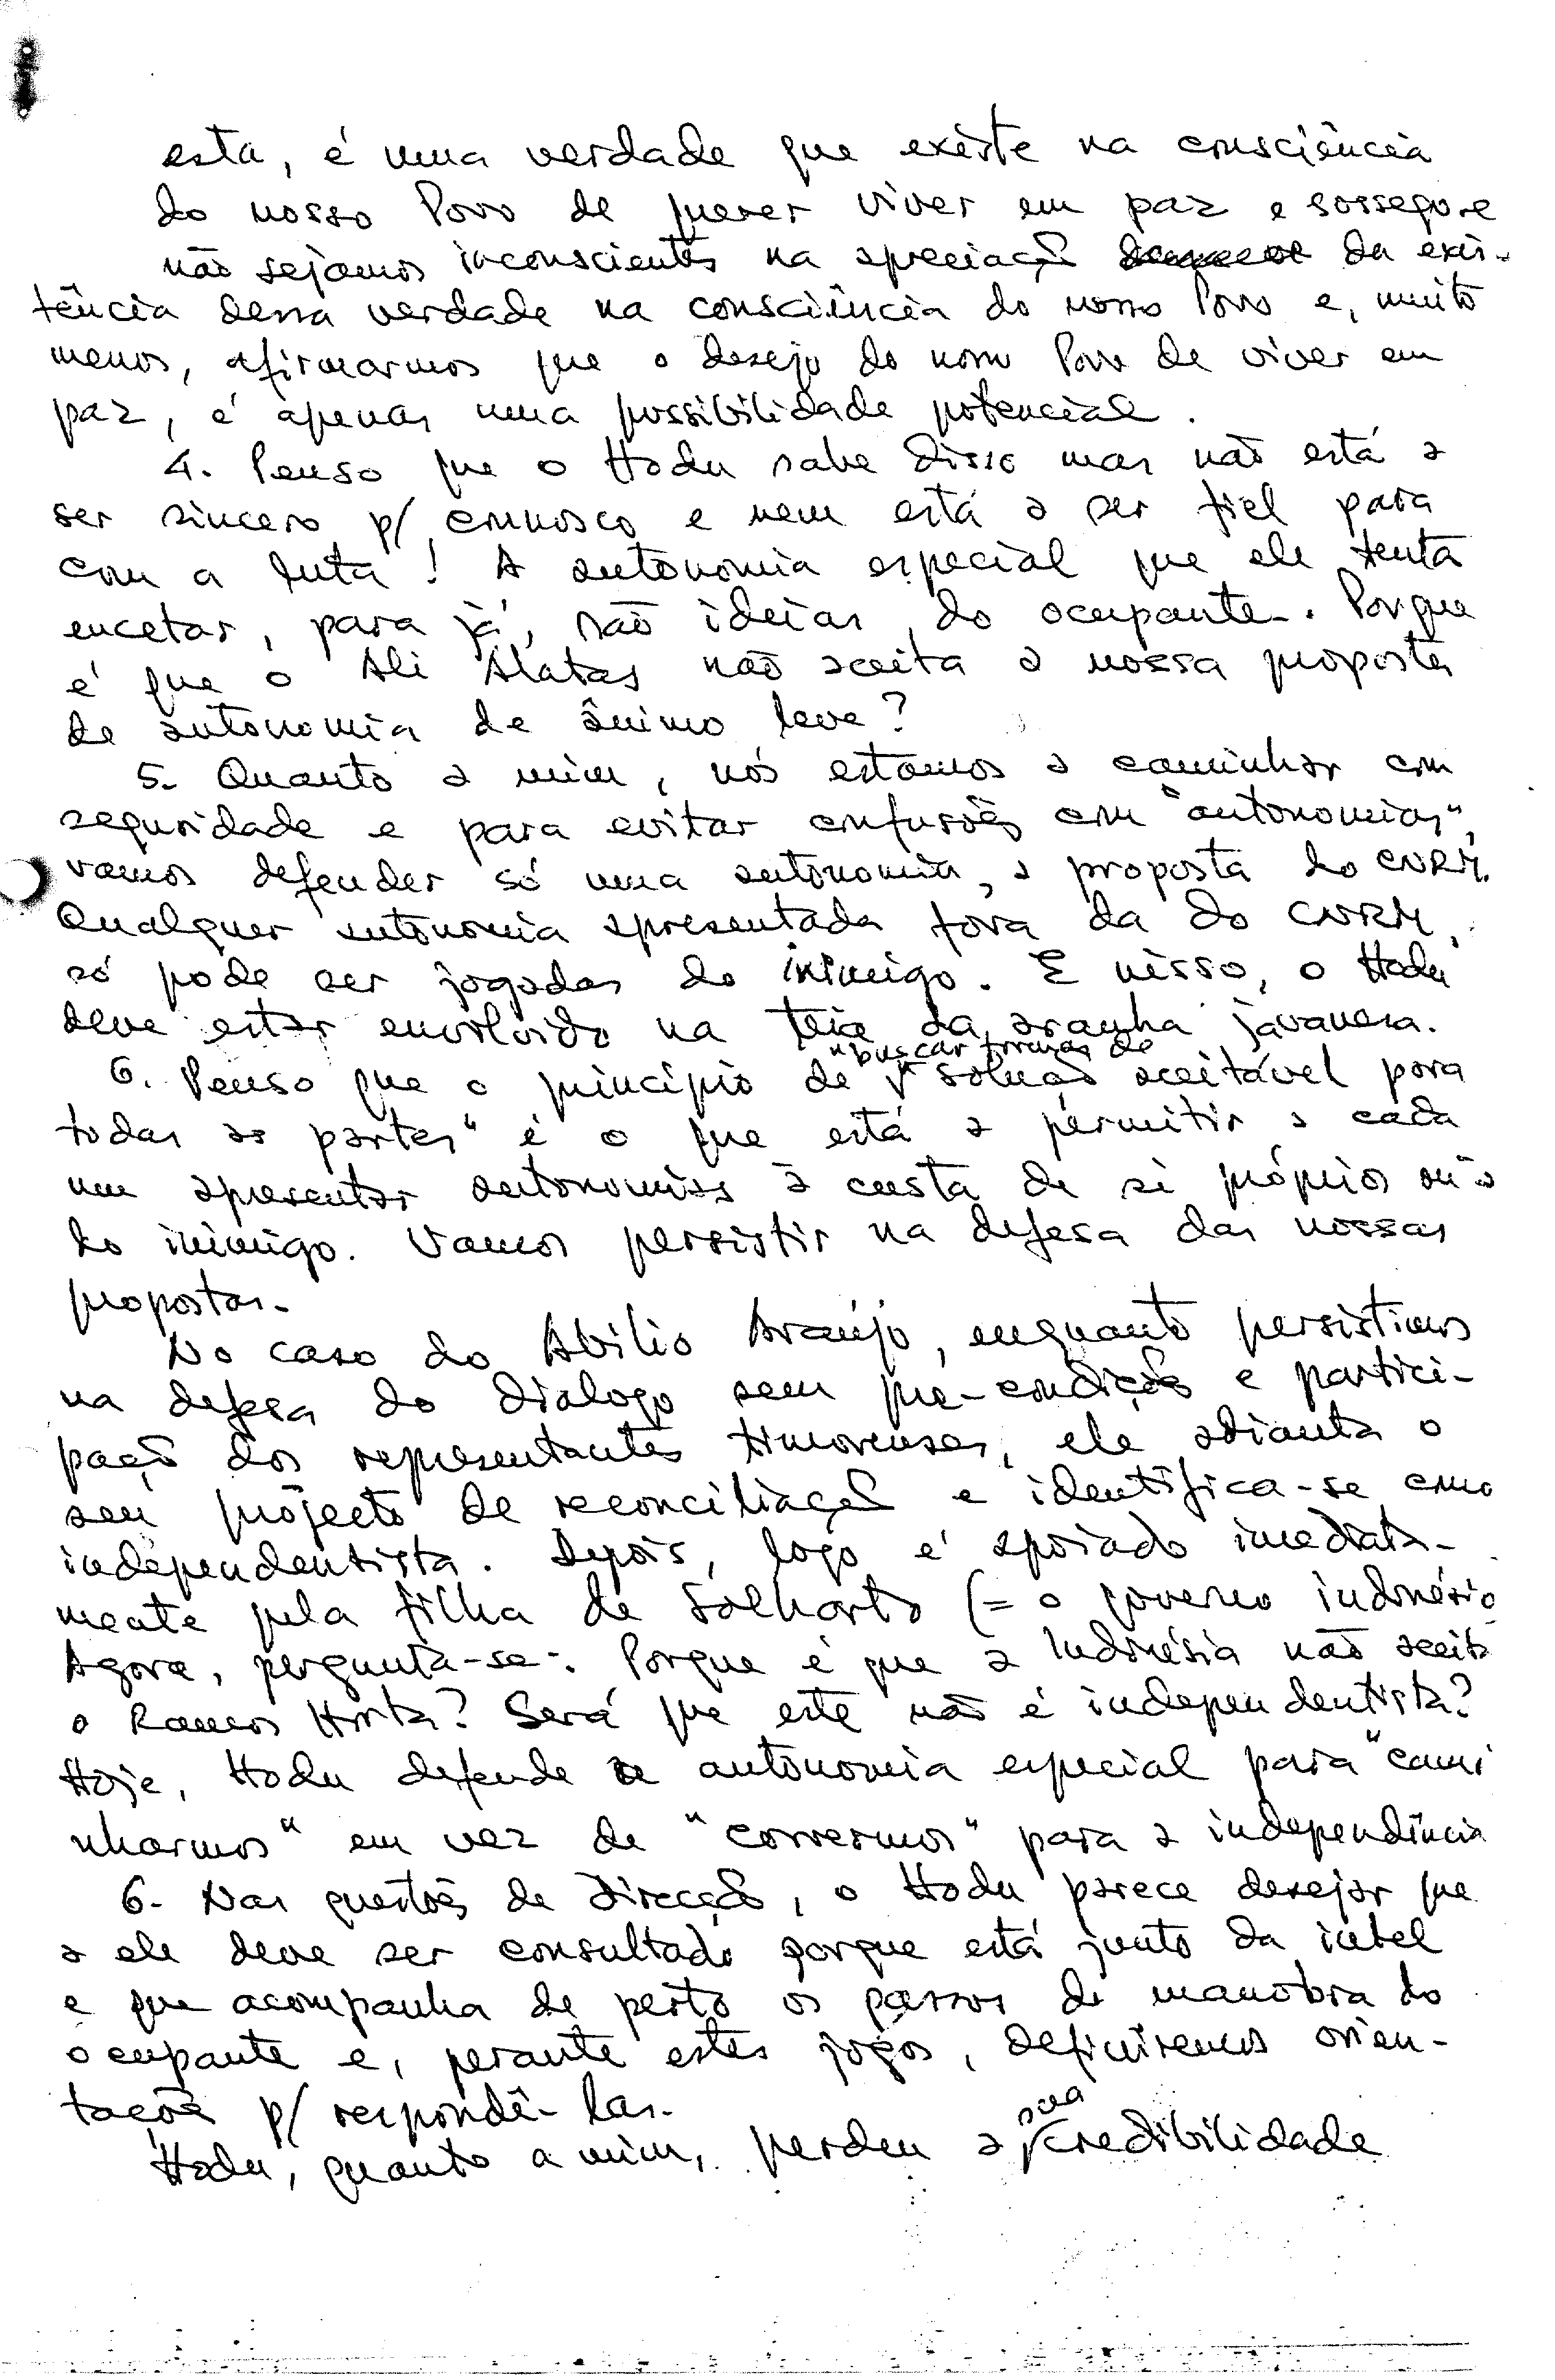 esta, é uma verdade que existe na consciência
do nosso Povo de querer viver em paz e sossego e
não sejamos inconscientes na apreciação da exis-
tência dessa verdade na consciência do nosso Povo e, muito
menos, afirmarmos que o desejo do nosso Povo de viver em
paz, é apenas uma possibilidade potencial.
4. Penso que o Hodu sabe disso mas não está a
ser sincero p/ connosco e nem está a ser fiel para
com a luta! A autonomia especial que ele tenta
encetar, para já, são ideias do ocupante. Porque
é que o Ali Alatas não aceita a nossa proposta
de autonomia de ânimo leve?
5. Quanto a mim, nós estamos a caminhar com
seguridade e para evitar confusões com "autonomias",
vamos defender só uma autonomia, a proposta do CNRM.
Qualquer autonomia apresentada fora da do CNRM,
só pode ser jogadas do inimigo. E nisso, o Hodu
deve estar envolvido na teia da aranha javanesa.
6. Penso que o princípio de "buscar formas de solução aceitável para
todas as partes" é o que está a permitir a cada
um apresentar autonomias à custa de si próprios ou à
do inimigo. Vamos persistir na defesa das nossas
propostas.
No caso do Abílio Araújo, enquanto persistimos
na defesa do dialogo sem pré-condições e partici-
pação dos representantes timorenses, ele adianta o
seu projecto de reconciliação e identifica-se como
independentista. Depois, logo é apoiado imediata-
mente pela filha de Solharto (= o governo indonésio
Agora, pergunta-se: Porque é que a Indonésia não aceita
o Ramos Horta? Será que este não é independentista?
Hoje, Hodu defende a autonomia especial para "cami
nharmos" em vez de "corrermos" para a independência
6. Nas questões de direcção, o Hodu parece desejar que
a ele deve ser consultado porque está junto da intel
e que acompanha de perto os passos de manobra do
ocupante e, perante estes jogos, definiremos orien-
tações p/ respondê-las.
Hodu, quanto a mim, perdeu a sua credibilidade